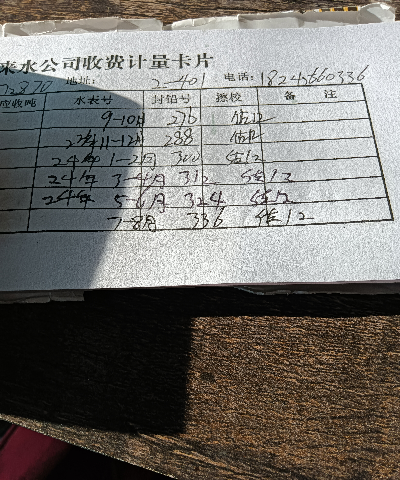 来水公司收费计量卡片
72870 地址: 2-401 电话: 18245660336
应收吨 水表号 封铅号 搬校 备 注
9-10月 276 估12
23年11-12月 288 估12
24年 1-2月 300 估12
24年 3-4月 312 估12
24年 5-6月 324 估12
7-8月 336 估12